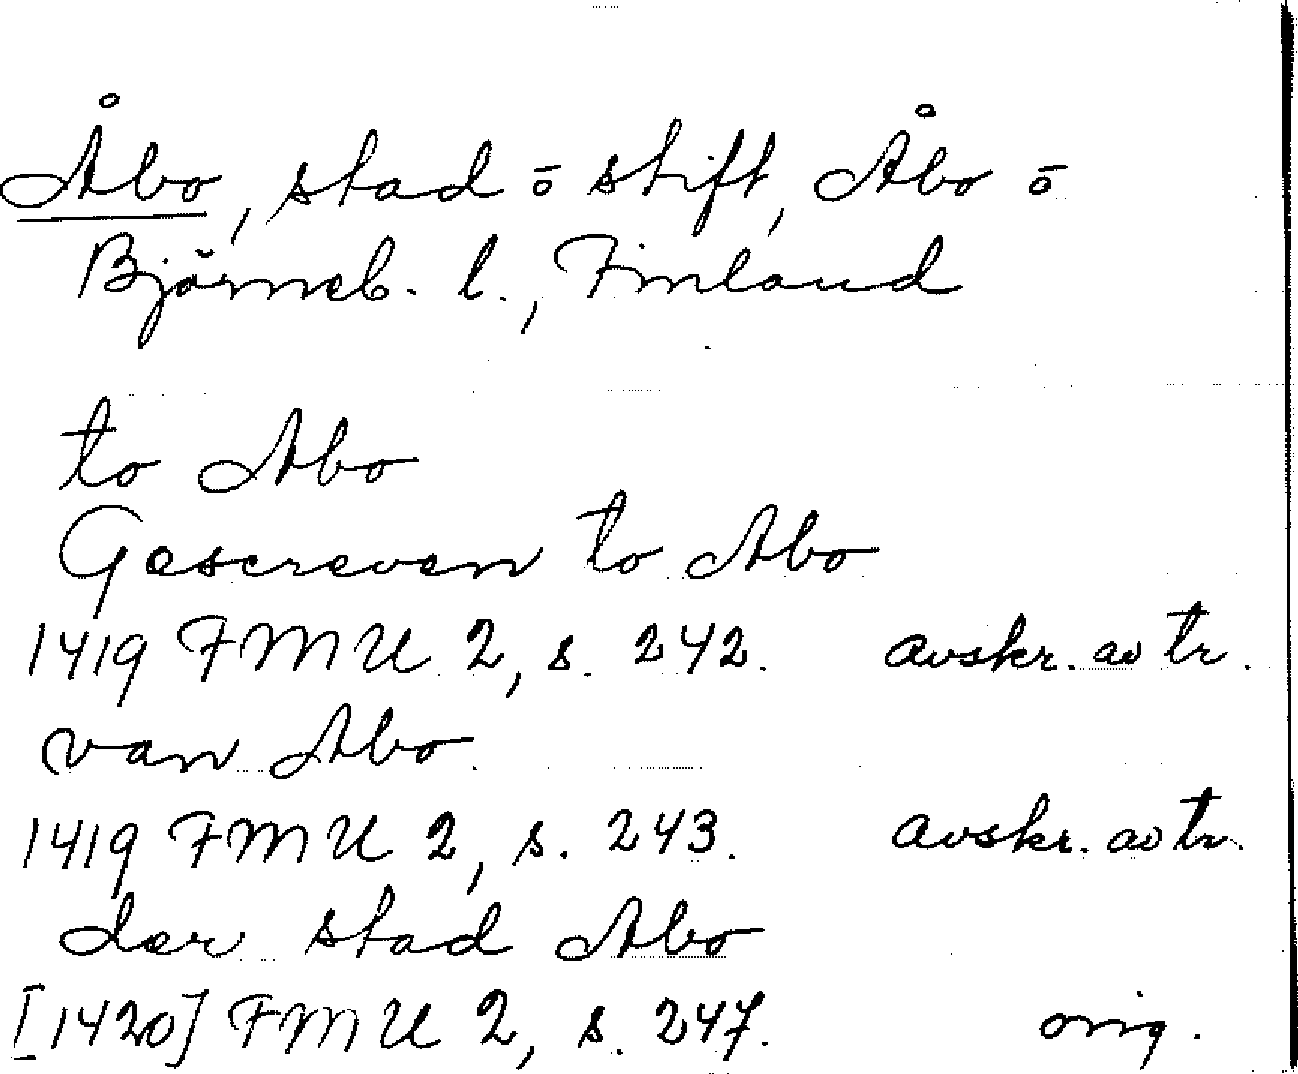 Åbo, stad o stift, Åbo o
Björneb. l., Finland
to Abo
Gescreven to Abo
1419 FMU 2, s. 242. avskr. av tr.
van Abo
1419 FMU 2, s. 243. avskr. av tr.
der stad Abo
[1420] FMU 2, s. 247. orig.